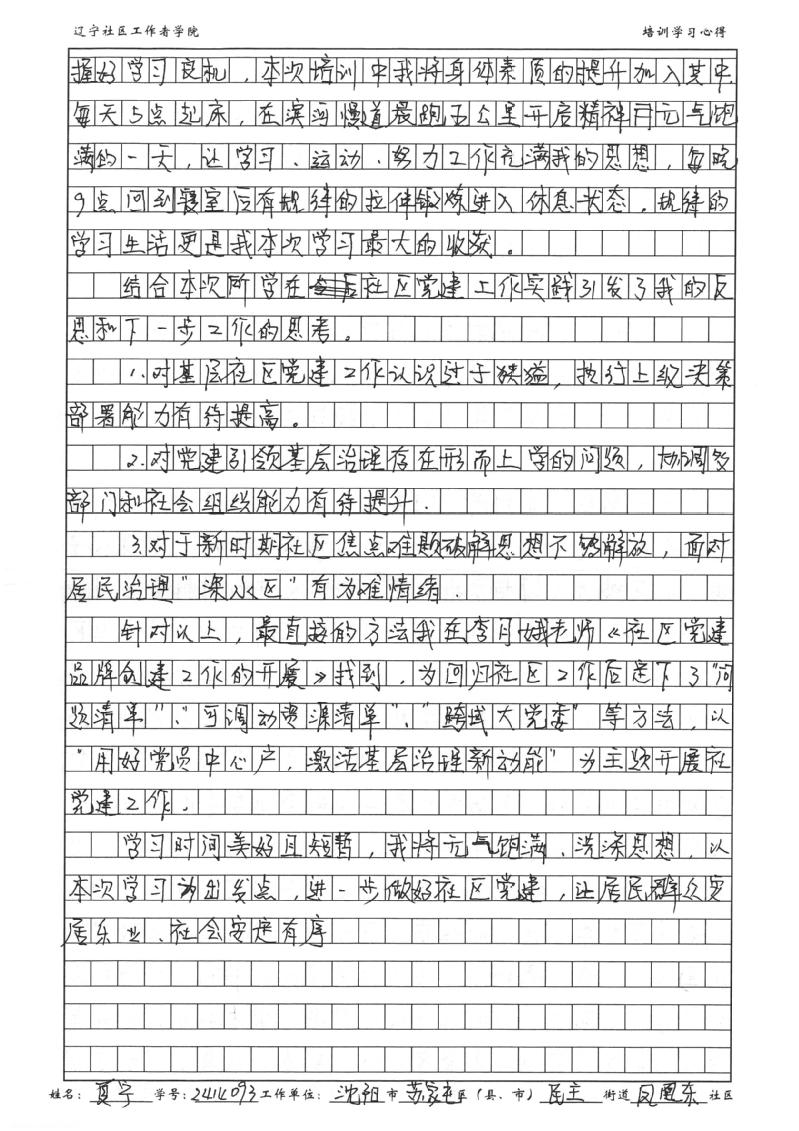 辽宁社区工作者学院 培训学习心得
握好学习良机，本次培训中我将身体素质的提升加入其中，
每天5点起床，在滨河慢道晨跑五公里开启精神元气饱
满的一天，让学习、运动、努力工作充满我的思想，每晚
9点回到寝室后有规律的拉伸锻炼进入休息状态。规律的
学习生活更是我本次学习最大的收获。
结合本次所学在社区党建工作实践引发了我的反
思和下一步工作的思考。
1.对基层社区党建工作认识过于狭隘，执行上级决策
部署能力有待提高。
2.对党建引领基层治理存在形而上学的问题，协调各
部门和社会组织能力有待提升.
3.对于新时期社区焦点难题破解思想不够解放，面对
居民治理“深水区”有为难情绪.
针对以上，最直接的方法我在李月娥老师《社区党建
品牌创建工作的开展》找到，为回归社区工作后定下了“问
题清单”、“可调动资源清单”、“跨域大党委”等方法，以
“用好党员中心户，激活基层治理新动能”为主题开展社
党建工作.
学习时间美好且短暂，我将元气饱满、洗涤思想，以
本次学习为出发点，进一步做好社区党建，让居民群众安
居乐业、社会安定有序
姓名：夏宁 学号：2414093 工作单位：沈阳市苏家屯区（县、市）民主街道凤凰东社区